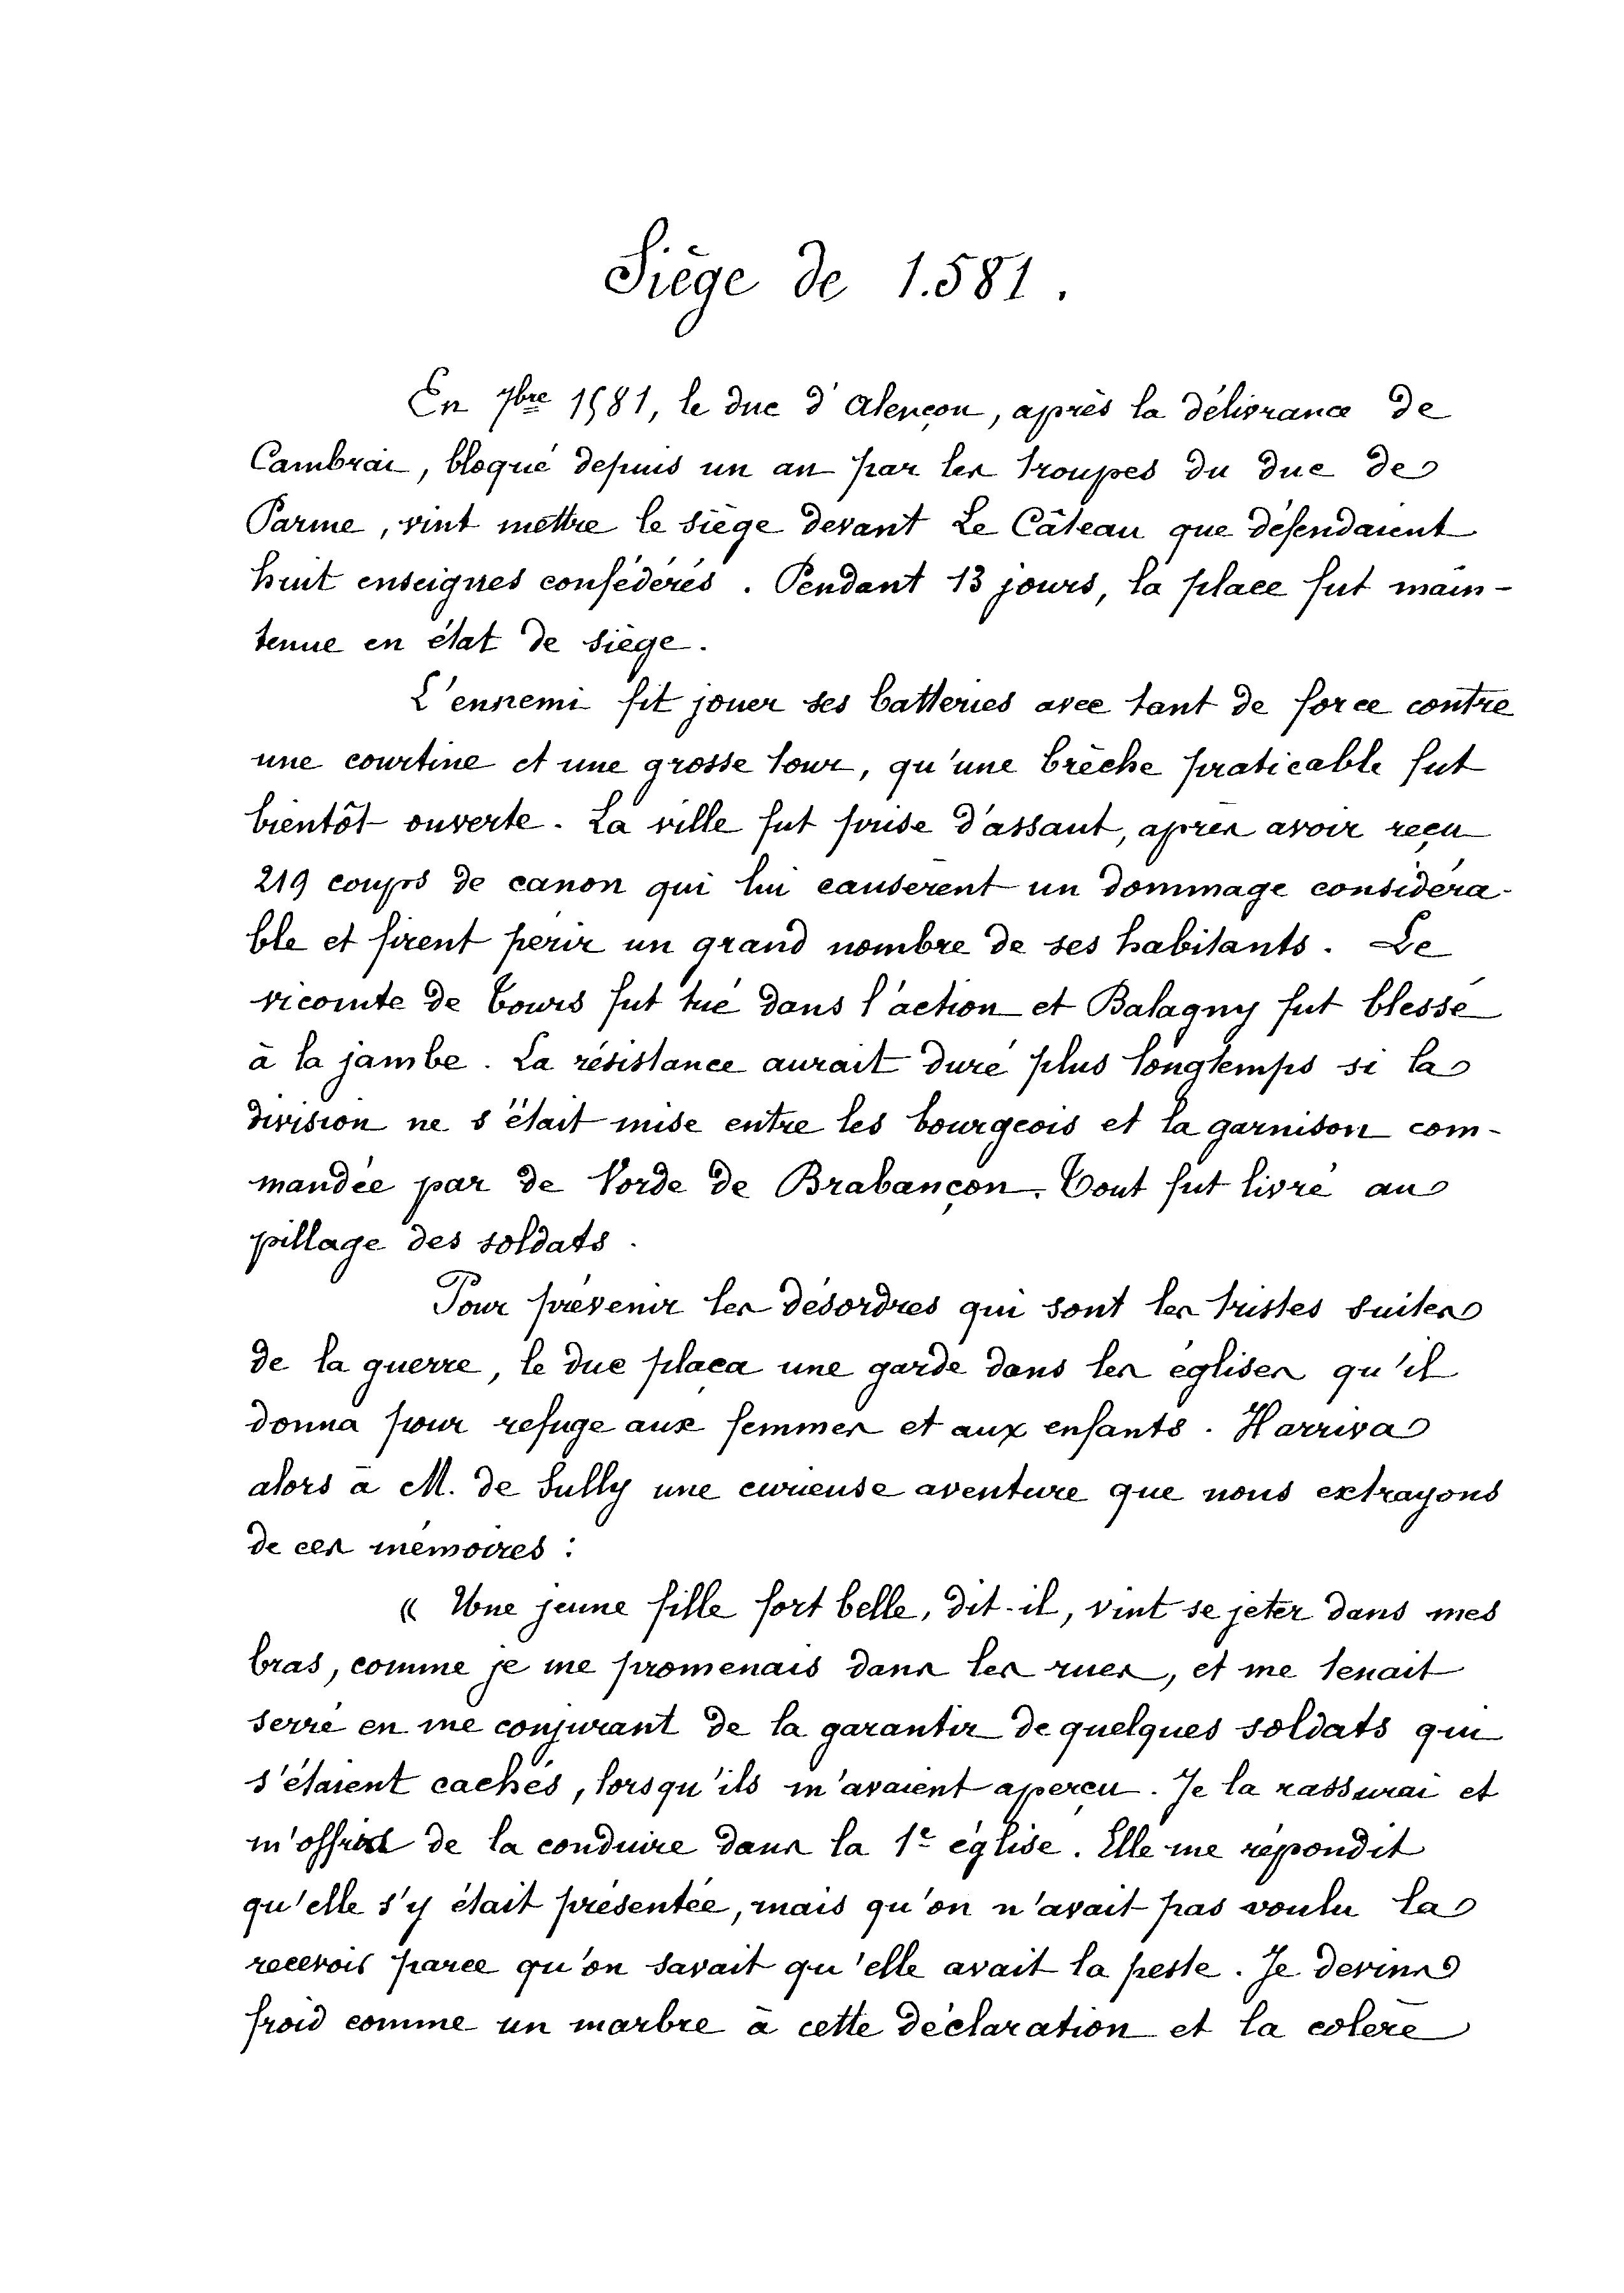 Siège de 1.581.
En 7bre 1581, le duc d'Alençon, après la délivrance de
Cambrai, bloqué depuis un an par les troupes du duc de
Parme, vint mettre le siège devant Le Câteau que défendaient
huit enseignes confédérés. Pendant 13 jours, la place fut main-
tenue en état de siège.
L'ennemi fit jouer ses batteries avec tant de force contre
une courtine et une grosse tour, qu'une brèche praticable fut
bientôt ouverte. La ville fut prise d'assaut, après avoir reçu
219 coups de canon qui lui causèrent un dommage considéra-
ble et firent périr un grand nombre de ses habitants. Le
vicomte de Tours fut tué dans l'action et Balagny fut blessé
à la jambe. La résistance aurait duré plus longtemps si la
division ne s'était mise entre les bourgeois et la garnison com-
mandée par de Vorde de Brabançon. Tout fut livré au
pillage des soldats.
Pour prévenir les désordres qui sont les tristes suites
de la guerre, le duc plaça une garde dans les églises qu'il
donna pour refuge aux femmes et aux enfants. Il arriva
alors à M. de Sully une curieuse aventure que nous extrayons
de ces mémoires :
« Une jeune fille fort belle, dit-il, vint se jeter dans mes
bras, comme je me promenais dans les rues, et me tenait
serré en me conjurant de la garantir de quelques soldats qui
s'étaient cachés, lorsqu'ils m'avaient aperçu. Je la rassurai et
m'offris de la conduire dans la 1e église. Elle me répondit
qu'elle s'y était présentée, mais qu'on n'avait pas voulu la
recevoir parce qu'on savait qu'elle avait la peste. Je devins
froid comme un marbre à cette déclaration et la colère